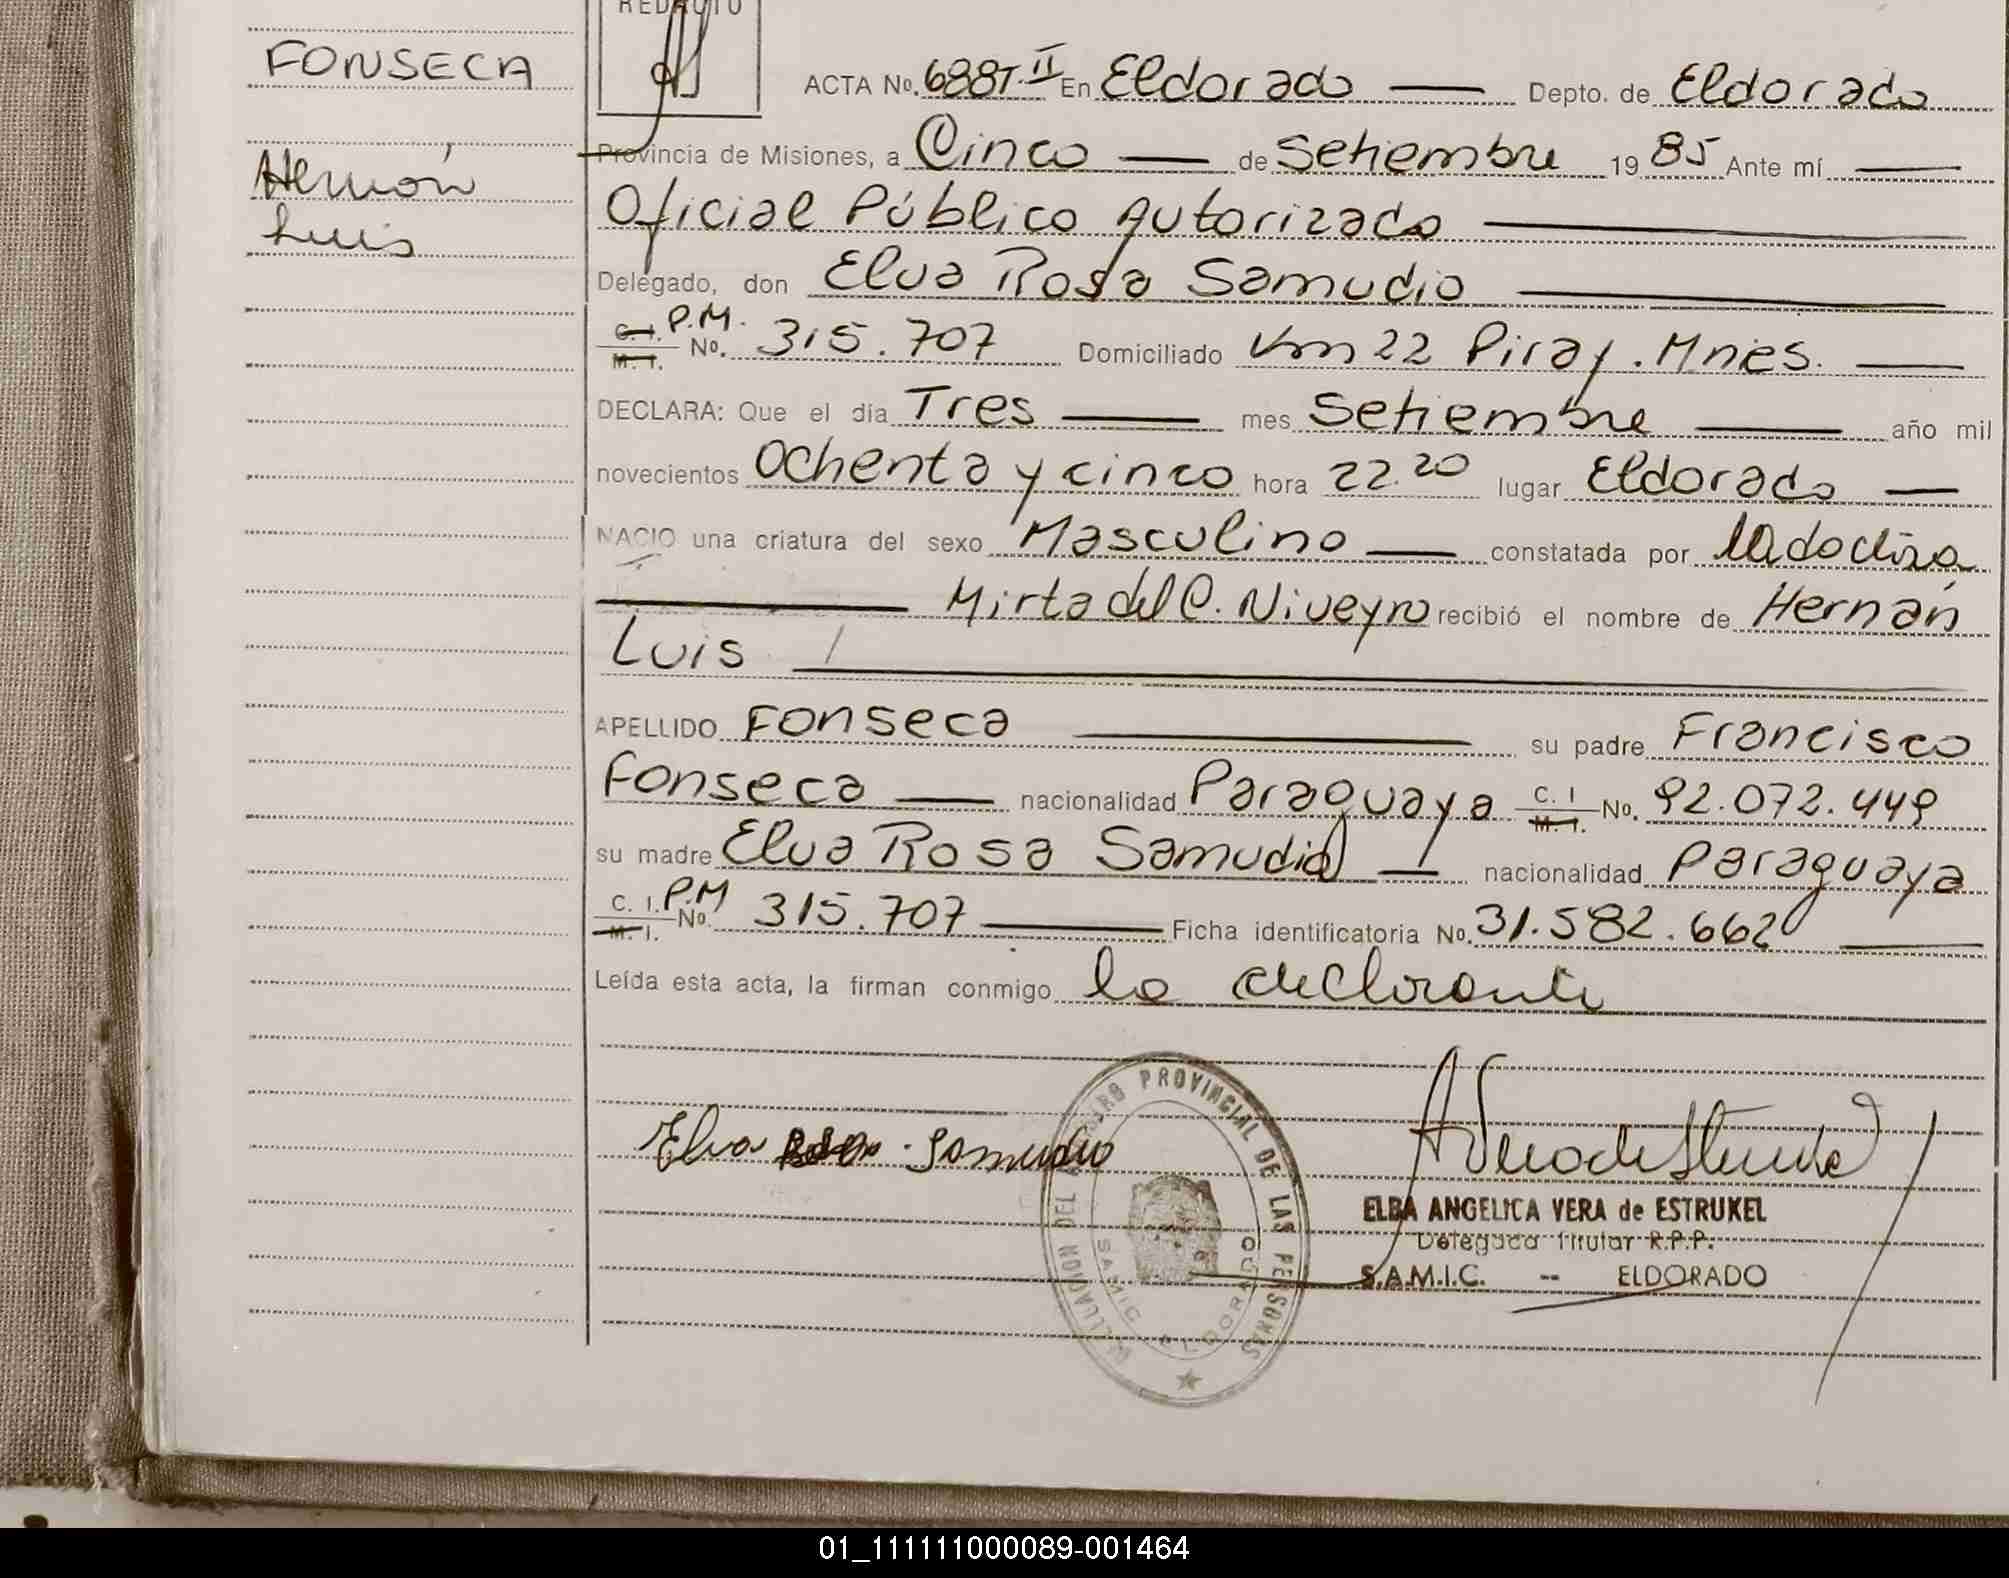 REDACTO
FONSECA
Hernán
Luis
ACTA No. 688T.II En Eldorado — Depto. de Eldorado
Provincia de Misiones, a Cinco — de Setiembre 19 85 Ante mí —
Oficial Público Autorizado —
Delegado, don Elva Rosa Samudio —
C. I. P.M.
M. I. No. 315.707 Domiciliado Km 22 Piray. Mnes. —
DECLARA: Que el día Tres — mes Setiembre — año mil
novecientos Ochenta y cinco hora 22.20 lugar Eldorado —
NACIO una criatura del sexo Masculino — constatada por la doctora
— Mirta del C. Niveyro recibió el nombre de Hernán
Luis —
APELLIDO Fonseca — su padre Francisco
Fonseca — nacionalidad Paraguaya C. I. M. I. No. 92.072.449
su madre Elva Rosa Samudio — nacionalidad Paraguaya
C. I. P.M
M. I. No. 315.707 — Ficha identificatoria No. 31.582.662 —
Leída esta acta, la firman conmigo la declarante
Elva Rosa Samudio
PROVINCIAL DE LAS PERSONAS
SAMIC ELDORADO
ELBA ANGELICA VERA de ESTRUKEL
Delegada Titular R.P.P.
S.A.M.I.C. -- ELDORADO
01_111111000089-001464